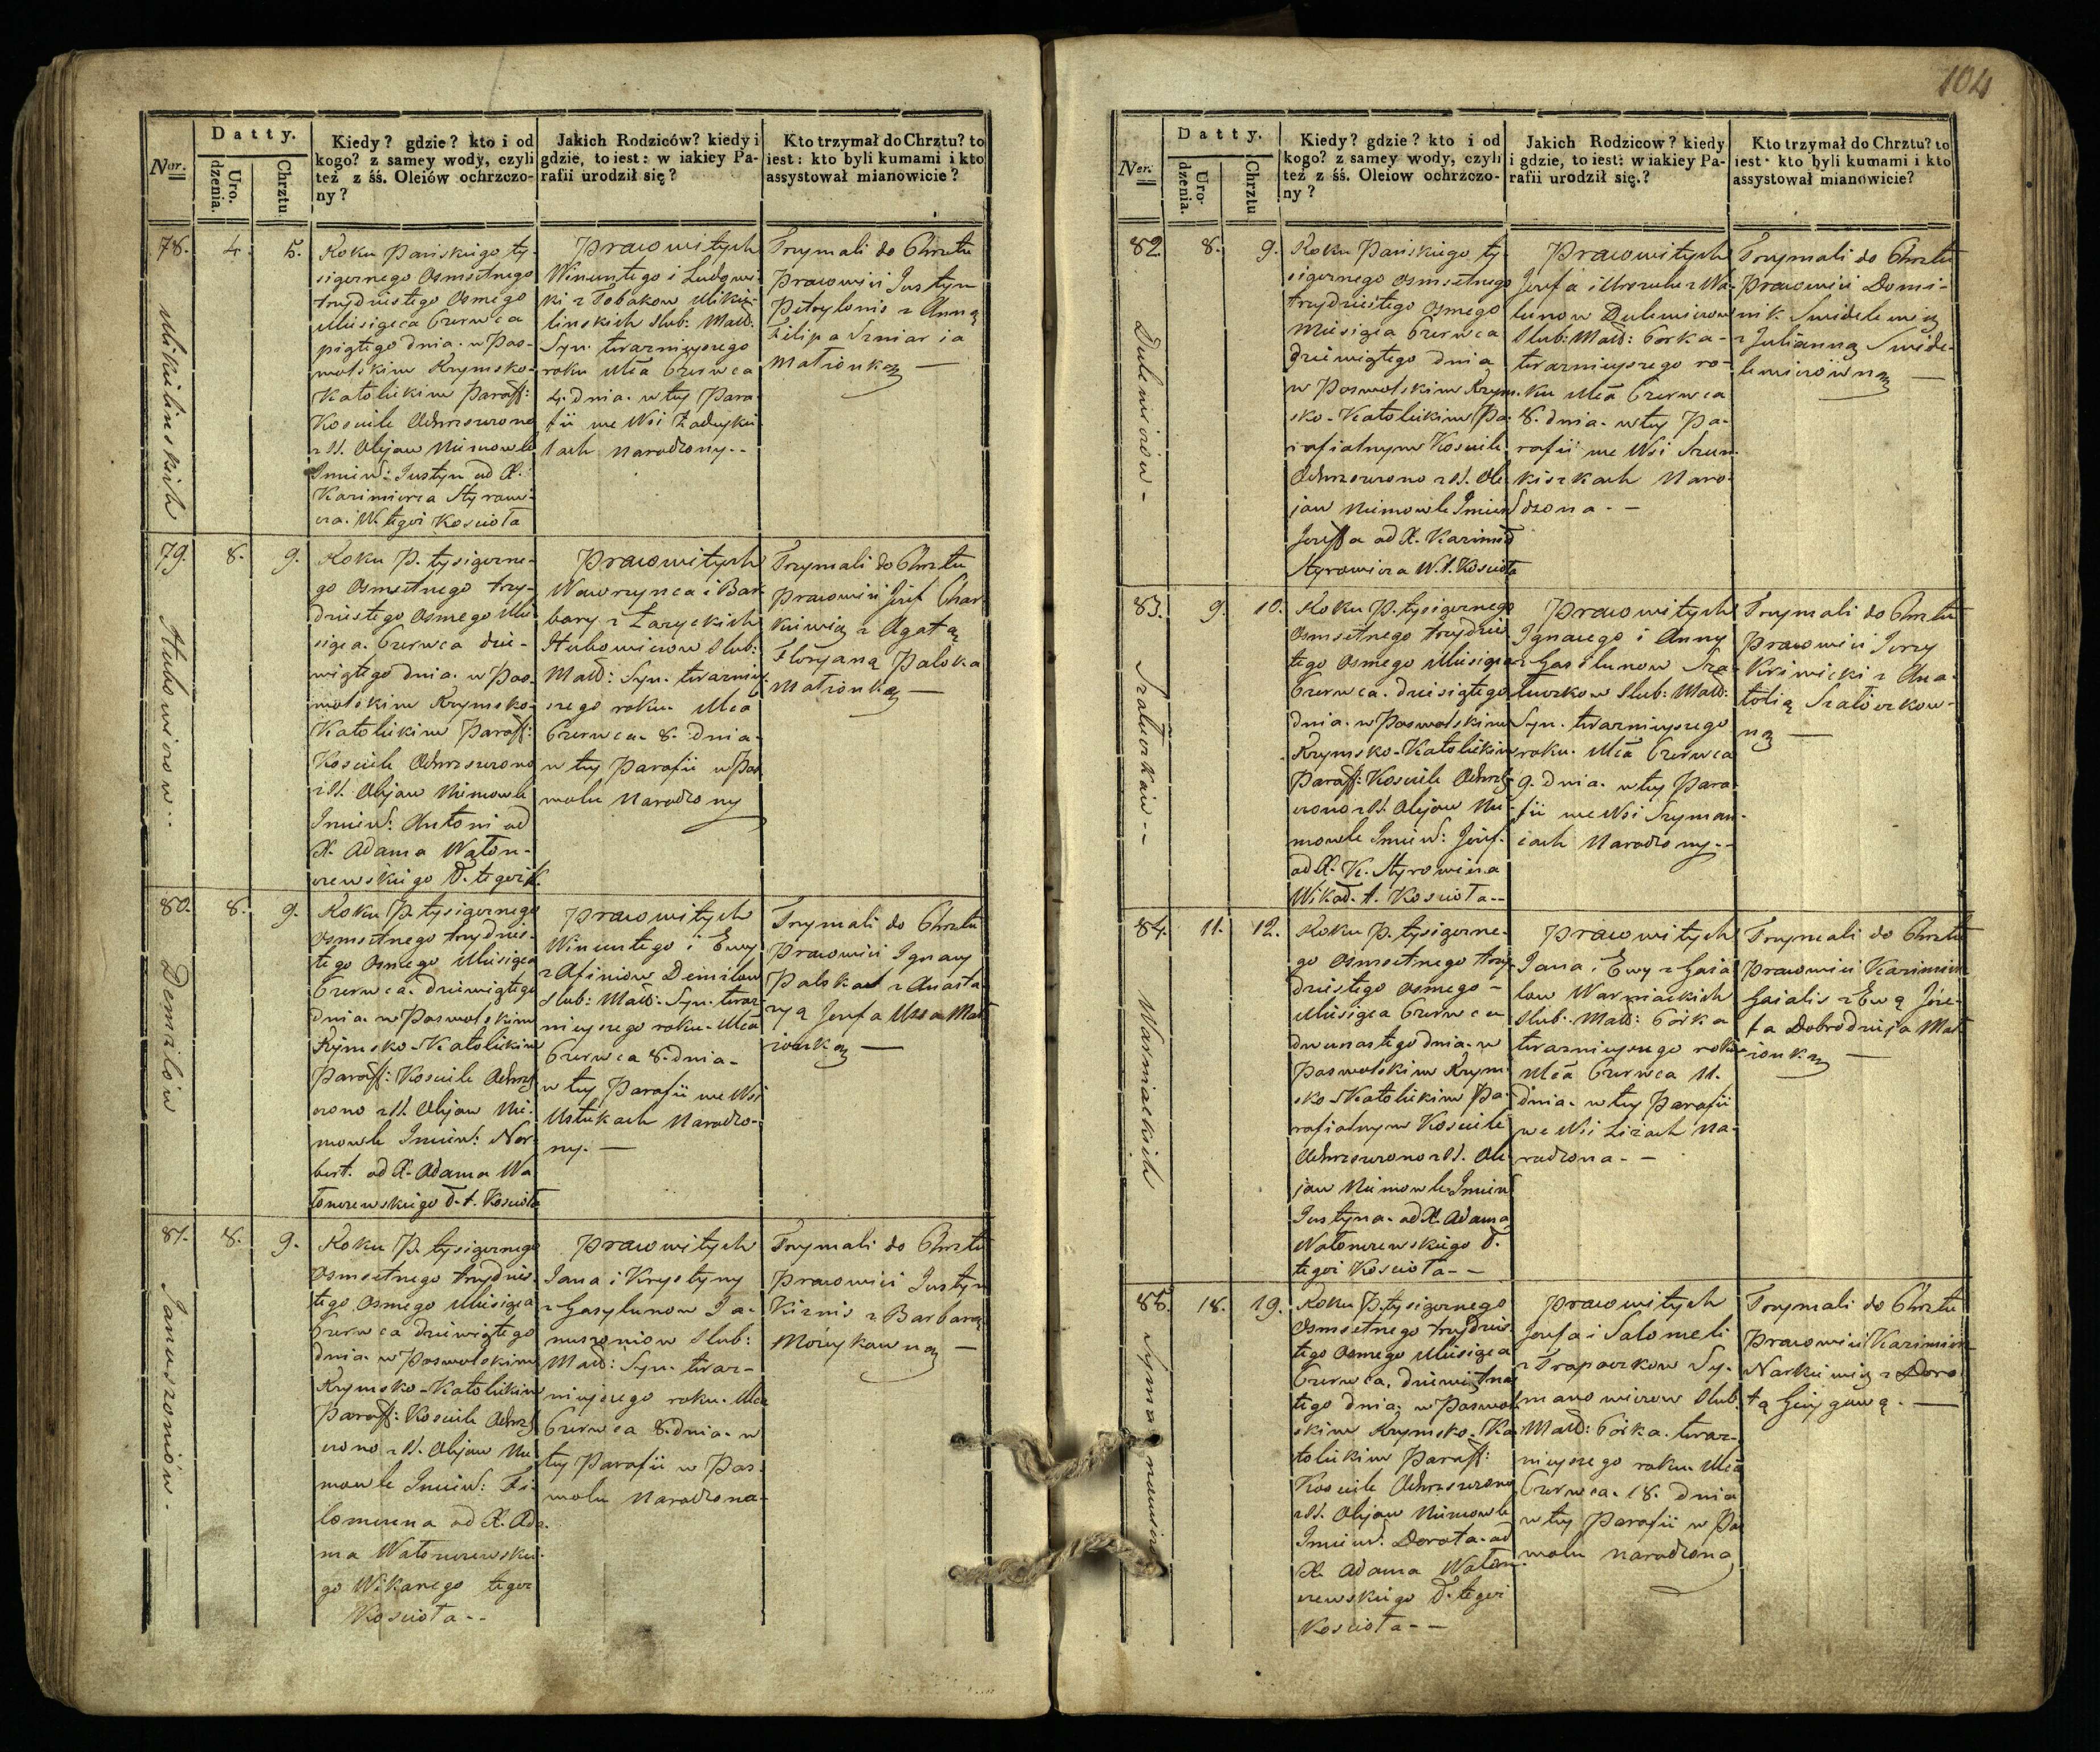 104
Ner.
Datty.
Urodzenia.
Chrztu
Kiedy? gdzie? kto i od
kogo? z samey wody, czyli
też z śś. Oleiów ochrzczo-
ny?
Jakich Rodziców? kiedy i
gdzie, to iest: w iakiey Pa-
rafii urodził się?
Kto trzymał do Chrztu? to
iest: kto byli kumami i kto
assystował mianowicie?
78.
4.
5.
Mikulinskich
Roku Pańskiego ty-
siącznego Osmsetnego
trzydziestego Osmego
Miesiąca Czerwca
piątego dnia. w Pos-
wolskim Rzymsko-
Katolickim Paraff:
Kosciele Ochrzczono
z SS. Olejow Niemowle
Imien: Justyn od X.
Kazimierza Styrowi-
cza. W. tegoż Koscioła
Prawowitych
Wincentego i Ludowi-
ki z Tobakow Mikuc-
linskich Slub: Małż:
Syn. teraznieyszego
roku Mca Czerwca
4. dnia. w tey Para-
fii we Wsi Zadeyki-
lach Narodzony..
Trzymali do Chrztu
Prawowici Justyn
Petrylonis z Anną
Filipa Szniaria
Małżonką —
79.
8.
9.
Stubowiczow..
Roku P. tysiączne-
go Osmsetnego trzy-
dziestego Osmego Mie-
siąca. Czerwca dzie-
wiątego dnia. w Pos-
wolskim Rzymsko-
Katolickim Paraff:
Kosciele Ochrzczono
z SS. Olejow Niemowle
Imien: Antoni od
X. Adama Waton-
czewskiego D. tegoż K.
Prawowitych
Wawrzynca i Bar-
bary z Zaryckich
Stubowiczow Slub:
Małż: Syn. teraznie-
szego roku. Mca
Czerwca. 8. dnia.
w tey Parafii w Pos
wolu Narodzony
Trzymali do Chrztu
Prawowici Jozef Char-
kiewicz z Agatą
Floryaną Palska
Małżonką —
80.
8.
9.
Demiłow
Roku P. tysiącznego
Osmsetnego trzydzies-
tego Osmego Miesiąca
Czerwca. dziewiątego
dnia. w Poswolskim
Rzymsko-Katolickim
Paraff: Kosciele Ochrz-
czono z SS. Olejow Nie-
mowle Imien: Nor-
bert. od X. Adama Wa
tonczewskiego D. t. Koscioła
Prawowitych
Wincentego i Ewy
z Afiniow Demiłow
Slub: Małż: Syn. teraz-
nieyszego roku. Mca
Czerwca 8. dnia.
w tey Parafii we Wsi
Ustukach Narodzo-
ny. —
Trzymali do Chrztu
Prawowici Ignacy
Palskal z Anasta-
zyą Jozefa Ussa Mał
żonką —
81.
8.
9.
Januszoniów.
Roku P. tysiącznego
Osmsetnego trzydzies-
tego Osmego Miesiąca
Czerwca dziewiątego
dnia. w Poswolskim
Rzymsko-Katolickim
Paraff: Kosciele Ochrz-
czono z SS. Olejow Nie
mowle Imien: Fi-
lomena od X. Ada-
ma Watonczewskie-
go Wikarego tegoż
Koscioła..
Prawowitych
Jana i Krystyny
z Gasylunow Ja-
nuszoniow Slub:
Małż: Syn. teraz-
nieyszego roku. Mca
Czerwca 8. dnia. w
tey Parafii w Pos-
wolu Narodzona.
Trzymali do Chrztu
Prawowici Justyn
Kiznis z Barbarą
Morzykowną —
Ner.
Datty.
Urodzenia.
Chrztu
Kiedy? gdzie? kto i od
kogo? z samey wody, czyli
też z śś. Oleiow ochrzczo-
ny?
Jakich Rodzicow? kiedy
i gdzie, to iest: w iakiey Pa-
rafii urodził się.?
Kto trzymał do Chrztu? to
iest kto byli kumami i kto
assystował mianowicie?
82.
8.
9.
Dulewiczów-
Roku Pańskiego ty-
siącznego Osmsetnego
trzydziestego Osmego
Miesiąca Czerwca
dziewiątego dnia
w Poswolskim Rzym-
sko-Katolickim Pa-
rafialnym Kosciele
Ochrzczono z SS. Ole-
jow Niemowle Imien
Jozeffa od X. Kazimie
Styrowicza W. t. Koscioła
Prawowitych
Jozefa i Urszule z Wa-
lunow Dulewiczow
Slub: Małż: Corka-
teraznieyszego ro-
ku Mca Czerwca
8. dnia. w tey Pa-
rafii we Wsi Szun-
kiszkach Naro-
dzona. —
Trzymali do Chrztu
Prawowici Domi-
nik Swidelewicz
z Julianną Swide-
lewiczówną —
83.
9.
10.
Szatuerkow--
Roku P. tysiącznego
Osmsetnego trzydzies
tego Osmego Miesiąca
Czerwca. dziesiątego
dnia. w Poswolskim
Rzymsko-Katolickim
Paraff: Kosciele Ochrz-
czono z SS. Olejow Nie-
mowle Imien: Jozef.
od X. K. Styrowicza
Wikad. t. Koscioła--
Prawowitych
Ignacego i Anny
z Gasilunow Sza-
tuerkow Slub: Małż:
Syn. teraznieyszego
roku. Mca Czerwca
9. dnia. w tey Para-
fii we Wsi Szyman-
cach Narodzony--
Trzymali do Chrztu
Prawowici Jerzy
Krzwicki z Ana-
tolią Szatorkow-
ną —
84.
11.
12.
Warniackich
Roku P. tysiączne-
go Osmsetnego trzy-
dziestego Osmego-
Miesiąca Czerwca
dwunastego dnia. w
Poswolskim Rzym-
sko-Katolickim Pa-
rafialnym Kosciele
Ochrzczono z SS. Ole-
jow Niemowle Imien
Justyna. od X. Adama
Watonczewskiego D.
tegoż Koscioła--
Prawowitych
Jana i Ewy z Gaia-
low Warniackich
Slub: Małż: Córka
teraznieyszego roku
Mca Czerwca 11.
dnia. w tey Parafii
we Wsi Liżach Na-
rodzona. —
Trzymali do Chrztu
Prawowici Kazimierz
Gaialis z Ewą Józe-
fa Dobrodzieja Mał
żonką —
85.
18.
19.
Szymanowiczow
Roku P. tysiącznego
Osmsetnego trzydzies
tego Osmego Miesiąca
Czerwca, dziewiętna
tego dnia, w Poswol-
skim Rzymsko-Ka-
tolickim Paraff:
Kosciele Ochrzczono
z SS. Olejow Niemowle
Imien: Dorota. od
X. Adama Waton-
czewskiego D. tegoż
Koscioła--
Prawowitych
Jozefa i Salomeli
z Trapaczkow Sy-
manowiczow Slub.
Małż: Córka. teraz-
nieyszego roku. Mca
Czerwca. 18. dnia
w tey Parafii w Pos
wolu Narodzona
Trzymali do Chrztu
Prawowici Kazimierz
Narkiewicz z Doro-
tą Giezgową. —